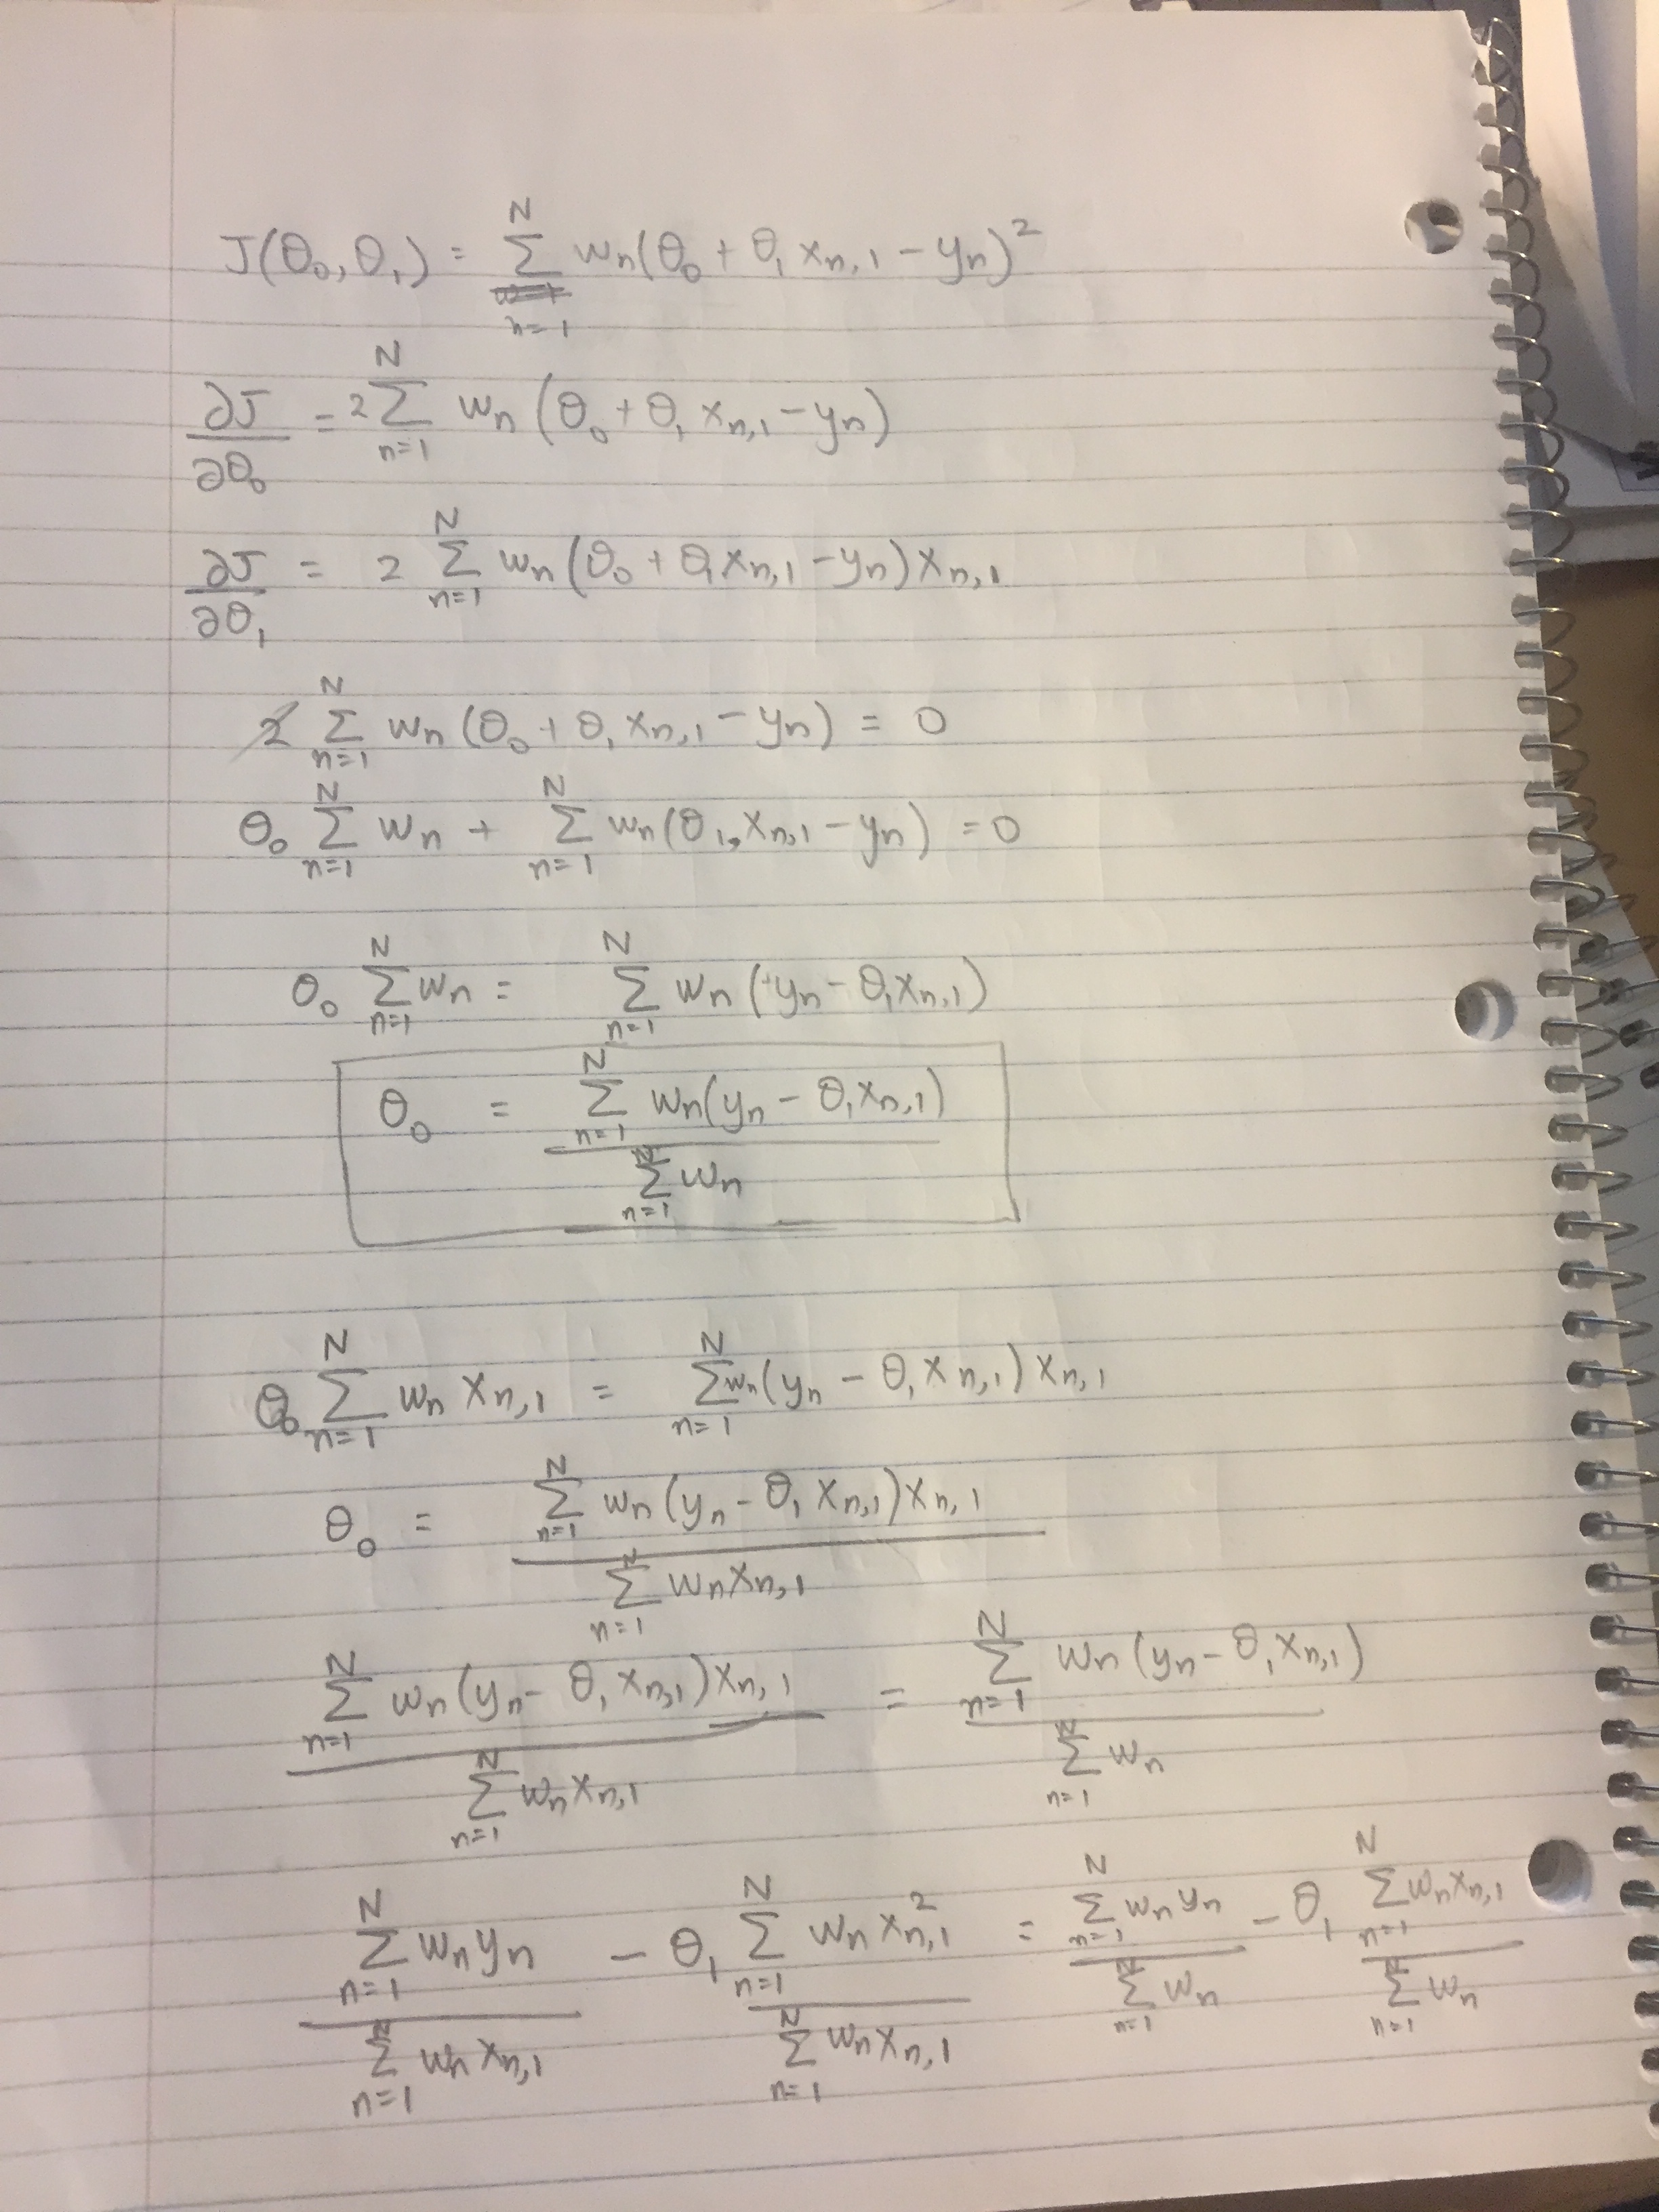 J(θ₀, θ₁) = Σ_{n=1}^{N} wₙ(θ₀ + θ₁ xₙ,₁ − yₙ)²
∂J/∂θ₀ = 2 Σ_{n=1}^{N} wₙ (θ₀ + θ₁ xₙ,₁ − yₙ)
∂J/∂θ₁ = 2 Σ_{n=1}^{N} wₙ (θ₀ + θ₁ xₙ,₁ − yₙ) xₙ,₁
2 Σ_{n=1}^{N} wₙ (θ₀ + θ₁ xₙ,₁ − yₙ) = 0
θ₀ Σ_{n=1}^{N} wₙ + Σ_{n=1}^{N} wₙ(θ₁ xₙ,₁ − yₙ) = 0
θ₀ Σ_{n=1}^{N} wₙ = Σ_{n=1}^{N} wₙ (yₙ − θ₁ xₙ,₁)
θ₀ = Σ_{n=1}^{N} wₙ(yₙ − θ₁ xₙ,₁) / Σ_{n=1}^{N} wₙ
θ₀ Σ_{n=1}^{N} wₙ xₙ,₁ = Σ_{n=1}^{N} wₙ(yₙ − θ₁ xₙ,₁) xₙ,₁
θ₀ = Σ_{n=1}^{N} wₙ (yₙ − θ₁ xₙ,₁) xₙ,₁ / Σ_{n=1}^{N} wₙ xₙ,₁
Σ_{n=1}^{N} wₙ (yₙ − θ₁ xₙ,₁) xₙ,₁ / Σ_{n=1}^{N} wₙ xₙ,₁ = Σ_{n=1}^{N} wₙ (yₙ − θ₁ xₙ,₁) / Σ_{n=1}^{N} wₙ
Σ_{n=1}^{N} wₙ yₙ / Σ_{n=1}^{N} wₙ xₙ,₁ − θ₁ Σ_{n=1}^{N} wₙ xₙ,₁² / Σ_{n=1}^{N} wₙ xₙ,₁ = Σ_{n=1}^{N} wₙ yₙ / Σ_{n=1}^{N} wₙ − θ₁ Σ_{n=1}^{N} wₙ xₙ,₁ / Σ_{n=1}^{N} wₙ